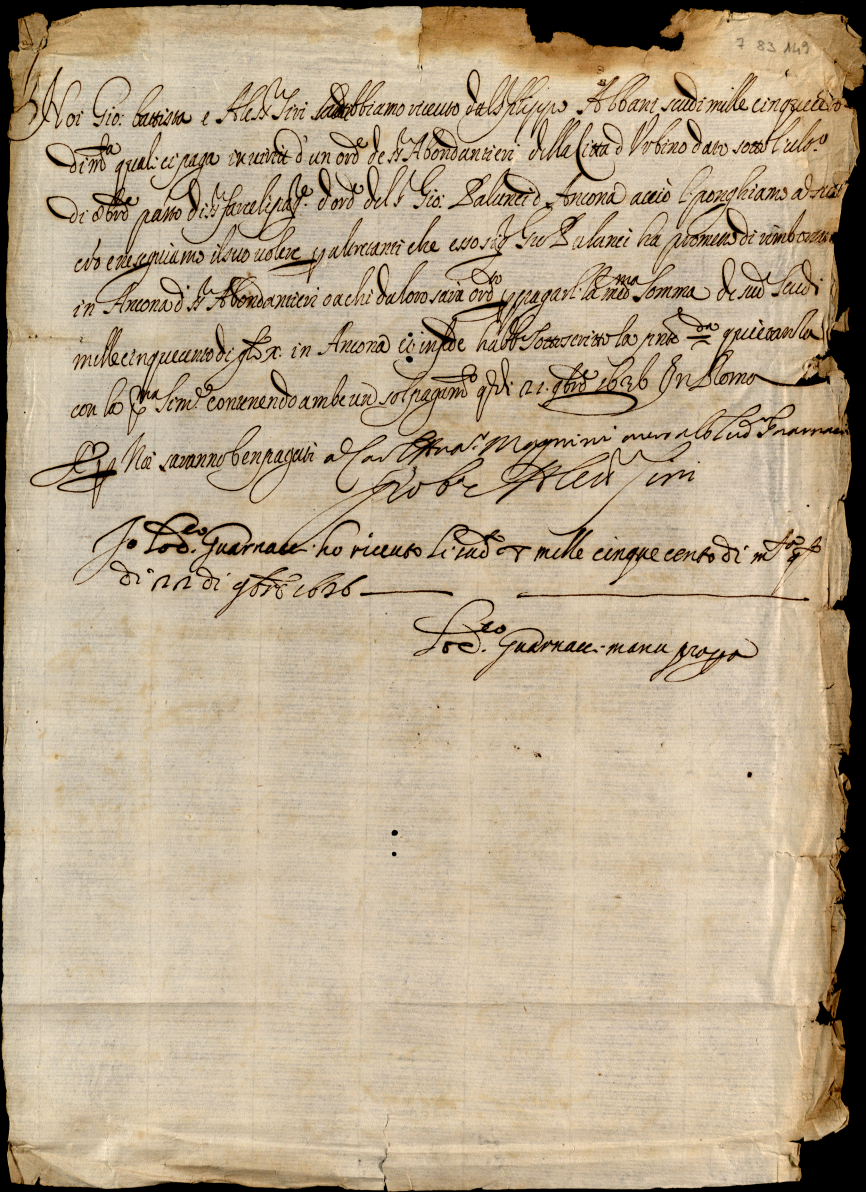 7 83 149
Noi Gio: battista e Aless.ro Siri habbiamo riceuto dal S.r filippo Abbani scudi mille cinquecento
di m.ta quali ci paga in virtù d'un ord.e de ss.ri Abondantieri della Città d Urbino dato sotto
di 8bre pass.to di ss.ri d'ord.e del S.r Gio: Palunci d Ancona acciò ponghiamo a
cio eneseguiamo il suo volere p altretanti che esso sig.r Gio: Palunci ha promesso di rimborsare
in Ancona d ss.ri Abondantieri o a chi da loro sarà ord.to p pagarli la med.ma Somma de sud.i Scudi
mille cinquecento di in Ancona et in fede habb.o sottoscritto la pnte quietanza
con la p.ma Sim.e contenendo ambe un sol pagam.to q.o di 21 9bre 1636 In Roma
Noi saranno ben pagati al Magnini overo a Lod.
Gio batt.a et Aless.ro Siri
Io Lod.co Guarnacc.i ho riceuto li sud.i ∇ mille cinque cento di m.ta q.o
di 22 di 9bre 1636
Lod.co Guarnacc.i manu propria